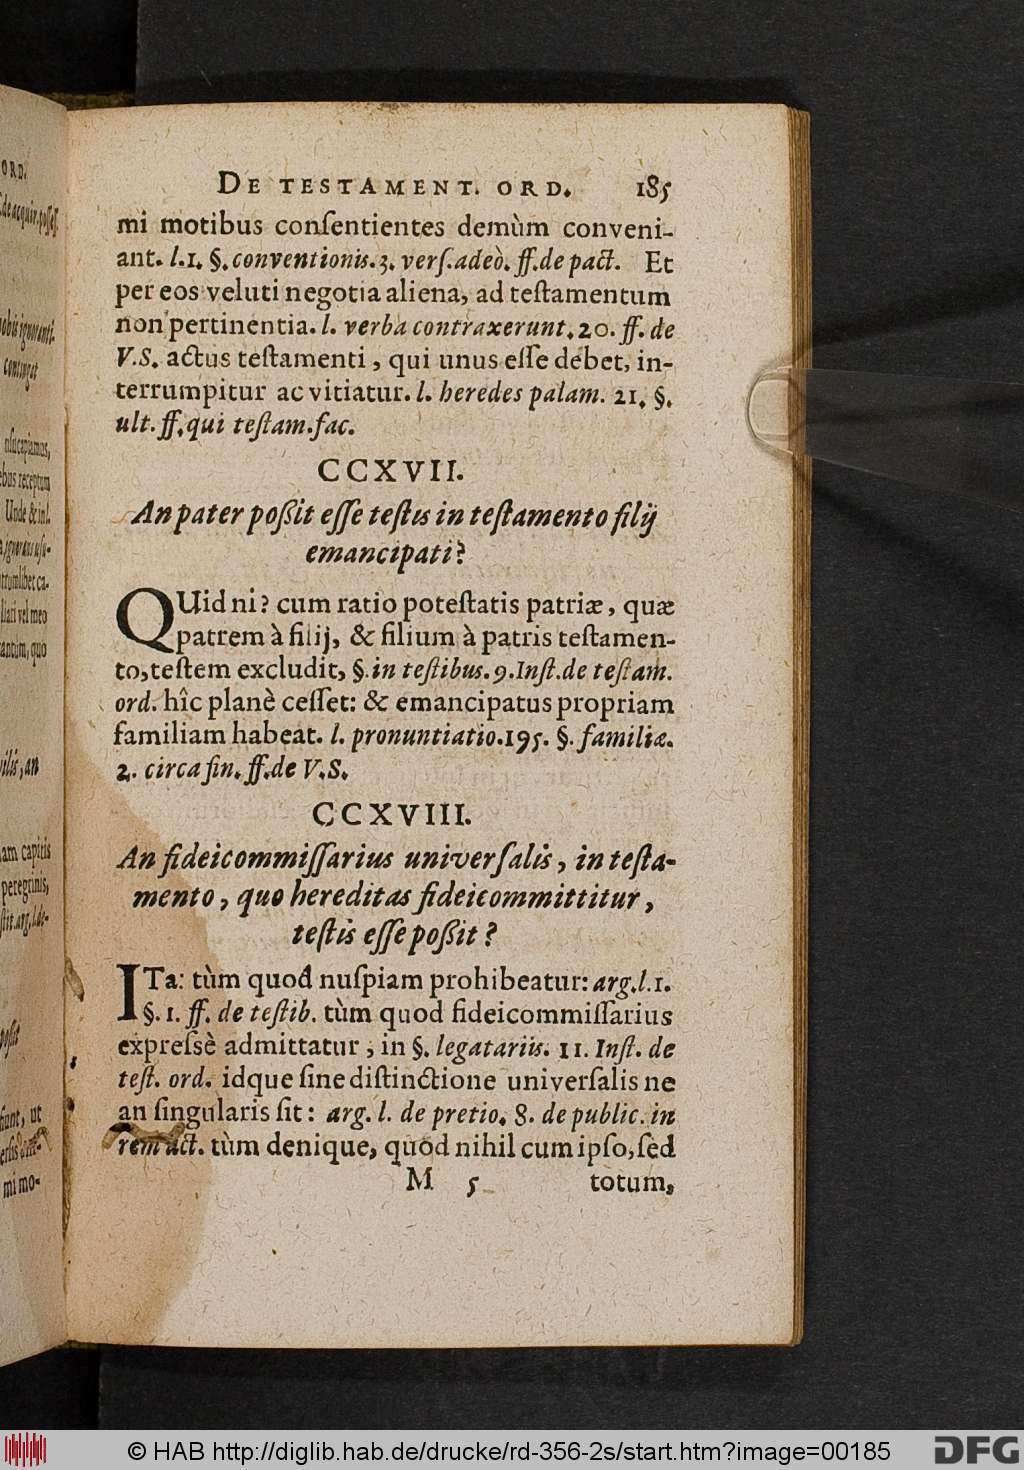 DE TESTAMENT. ORD. 185
mi motibus conſentientes demùm conveni-
ant. l.1. §. conventionis. 3. verſ. adeò. ff. de pact. Et
per eos veluti negotia aliena, ad teſtamentum
non pertinentia. l. verba contraxerunt. 20. ff. de
V.S. actus teſtamenti, qui unus eſſe debet, in-
terrumpitur ac vitiatur. l. heredes palam. 21. §.
ult. ff. qui teſtam. fac.
CCXVII.
An pater poßit eſſe teſtis in teſtamento filij
emancipati?
QUid ni? cum ratio poteſtatis patriæ, quæ
patrem à filij, & filium à patris teſtamen-
to, teſtem excludit, §. in teſtibus. 9. Inſt. de teſtam.
ord. hîc planè ceſſet: & emancipatus propriam
familiam habeat. l. pronuntiatio. 195. §. familiæ.
2. circa fin. ff. de V.S.
CCXVIII.
An fideicommiſſarius univerſalis, in teſta-
mento, quo hereditas fideicommittitur,
teſtis eſſe poßit?
ITa: tùm quod nuſpiam prohibeatur: arg. l. 1.
§. 1. ff. de teſtib. tùm quod fideicommiſſarius
expreſsè admittatur, in §. legatariis. 11. Inſt. de
teſt. ord. idque ſine diſtinctione univerſalis ne
an ſingularis ſit: arg. l. de pretio. 8. de public. in
rem act. tùm denique, quòd nihil cum ipſo, ſed
M 5 totum,
ORD.
de acquir. poſſeſſ.
contingit
nſucapiamus,
ebus receptum
Unde & in l.
trumlibet ca-
liati vel meo
tantùm, quo
vilis, an
iam capitis
peregrinis,
poſſit
fiunt, ut
mi mo-
© HAB http://diglib.hab.de/drucke/rd-356-2s/start.htm?image=00185
DFG